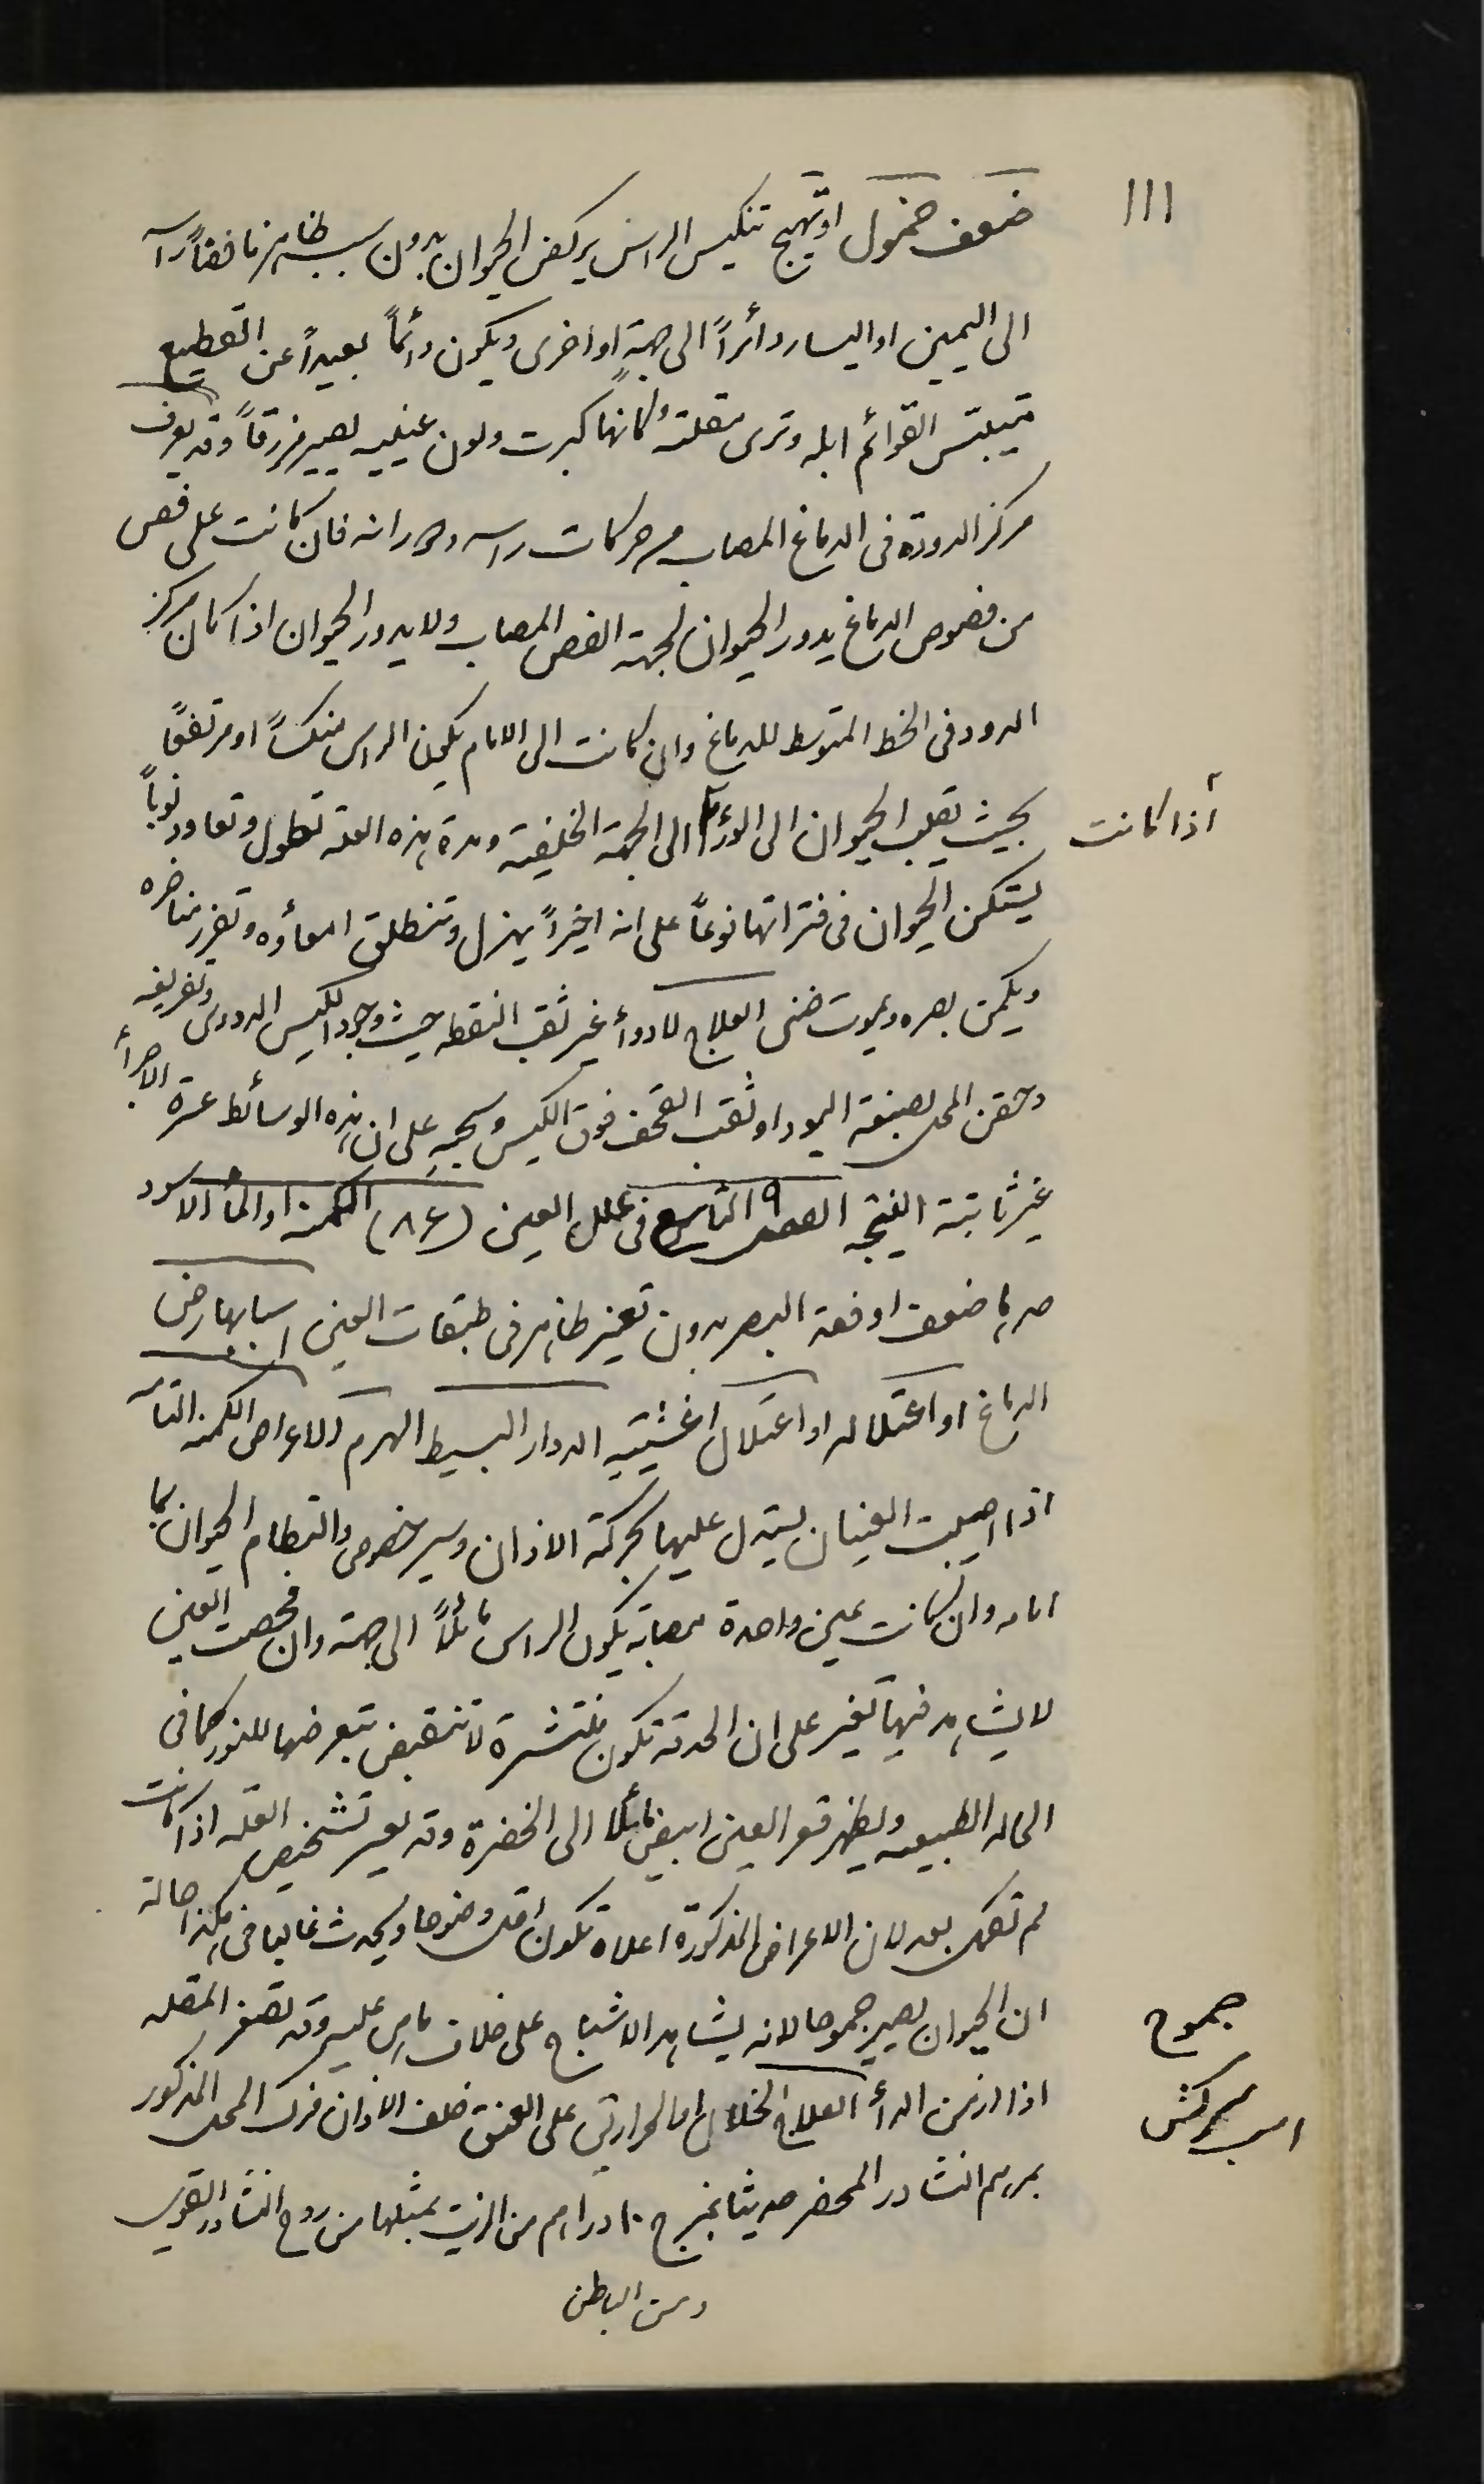 ١١١
ضعف خمول او تهيج تنكيس الراس يركض الحيوان بدون سبب ظاهر خافضاً راسه
الى اليمين او اليسار دائراً الى جهة او اخرى ويكون دائماً بعيداً عن القطيع
متيبس القوائم ابله وترى مقلته كانها كبرت ولون عينيه يصير مزرقاً وقد يعرف
مركز الدودة فى الدماغ المصاب من حركات راسه ودورانه فان كانت على فص
من فصوص الدماغ يدور الحيوان لجهة الفص المصاب ولا يدور الحيوان اذا كان مركز
الدود فى الخط المتوسط للدماغ وان كانت الى الامام يكون الراس منكساً او مرتفعاً
بحيث يقلب الحيوان الى الورأ الى الجهة الخلفية ومدة هذه العلة تطول وتعاود نوباً
أذا كانت
يستكن الحيوان فى فتراتها نوعاً على انه اخيراً يهزل وتنطلق امعأوه وتفرز مناخره
ويكمن بصره ويموت ضنى العلاج لا دوأ غير ثقب النقطه حيث وجود الكيس الدودى وتفريغه
وحقن المحل بصبغة اليود او ثقب القحف فوق الكيس وسحبه على ان هذه الوسائط عسرة الاجرأ
غير ثابتة النتيجه الفصل ٩ التاسع فى علل العين (٨٤) الكمنه او المأ الاسود
حدها ضعف او فقد البصر بدون تغير ظاهر فى طبقات العين اسبابها رض
الدماغ او اعتلاله او اعتلال اغشيتيه الدوار البسيط الهرم الاعراض الكمنه التآمه
اذا اصيبت العينان يستدل عليها بحركة الاذان وسير خصوصى والتطام الحيوان بما
امامه وان كانت عين واحدة مصابة يكون الراس مائلاً الى جهته وان فحصت العين
لا يشاهد فيها تغير على ان الحدقه تكون منتشرة لا تنقبض بتعرضها للنور كما فى
الحاله الطبيعيه ويظهر قعر العين ابيض مائلا الى الخضرة وقد يعسر تشخيص العله اذا كانت
لم تكمل بعد لان الاعراض المذكورة اعلاه تكون اقل وضوحا ويحدث غالبا فى هكذا حالة
ان الحيوان يصير جموحا لانه يشاهد الاشباح على خلاف ما هى عليه وقد تصغر المقله
جموح
اذا ازمن الدأ العلاج الخلال او الحراريق على العنق خلف الاذان فرك المحل المذكور
بمرهم النشادر المحضر حديثا بمزج ١٠ دراهم من الزيت بمثلها من روح النشادر القوى
ومن الباطن